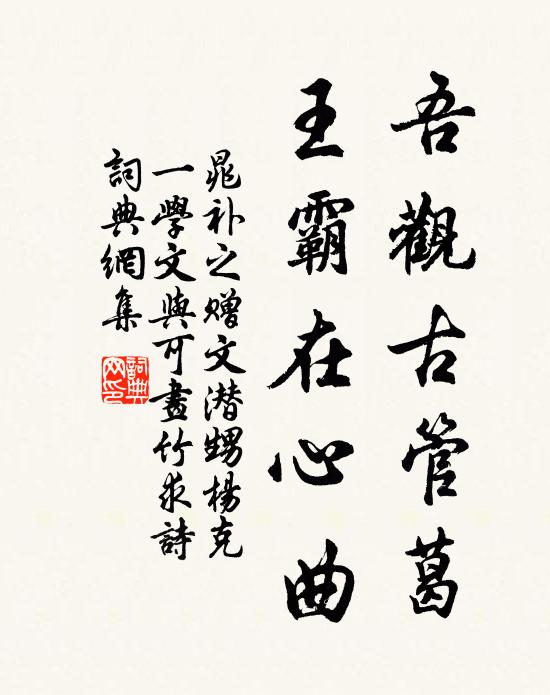 吾觀古管葛
王霸在心曲
晁补之贈文潜甥楊克
一學文與可畫竹求詩
詞典網集
詞典網印